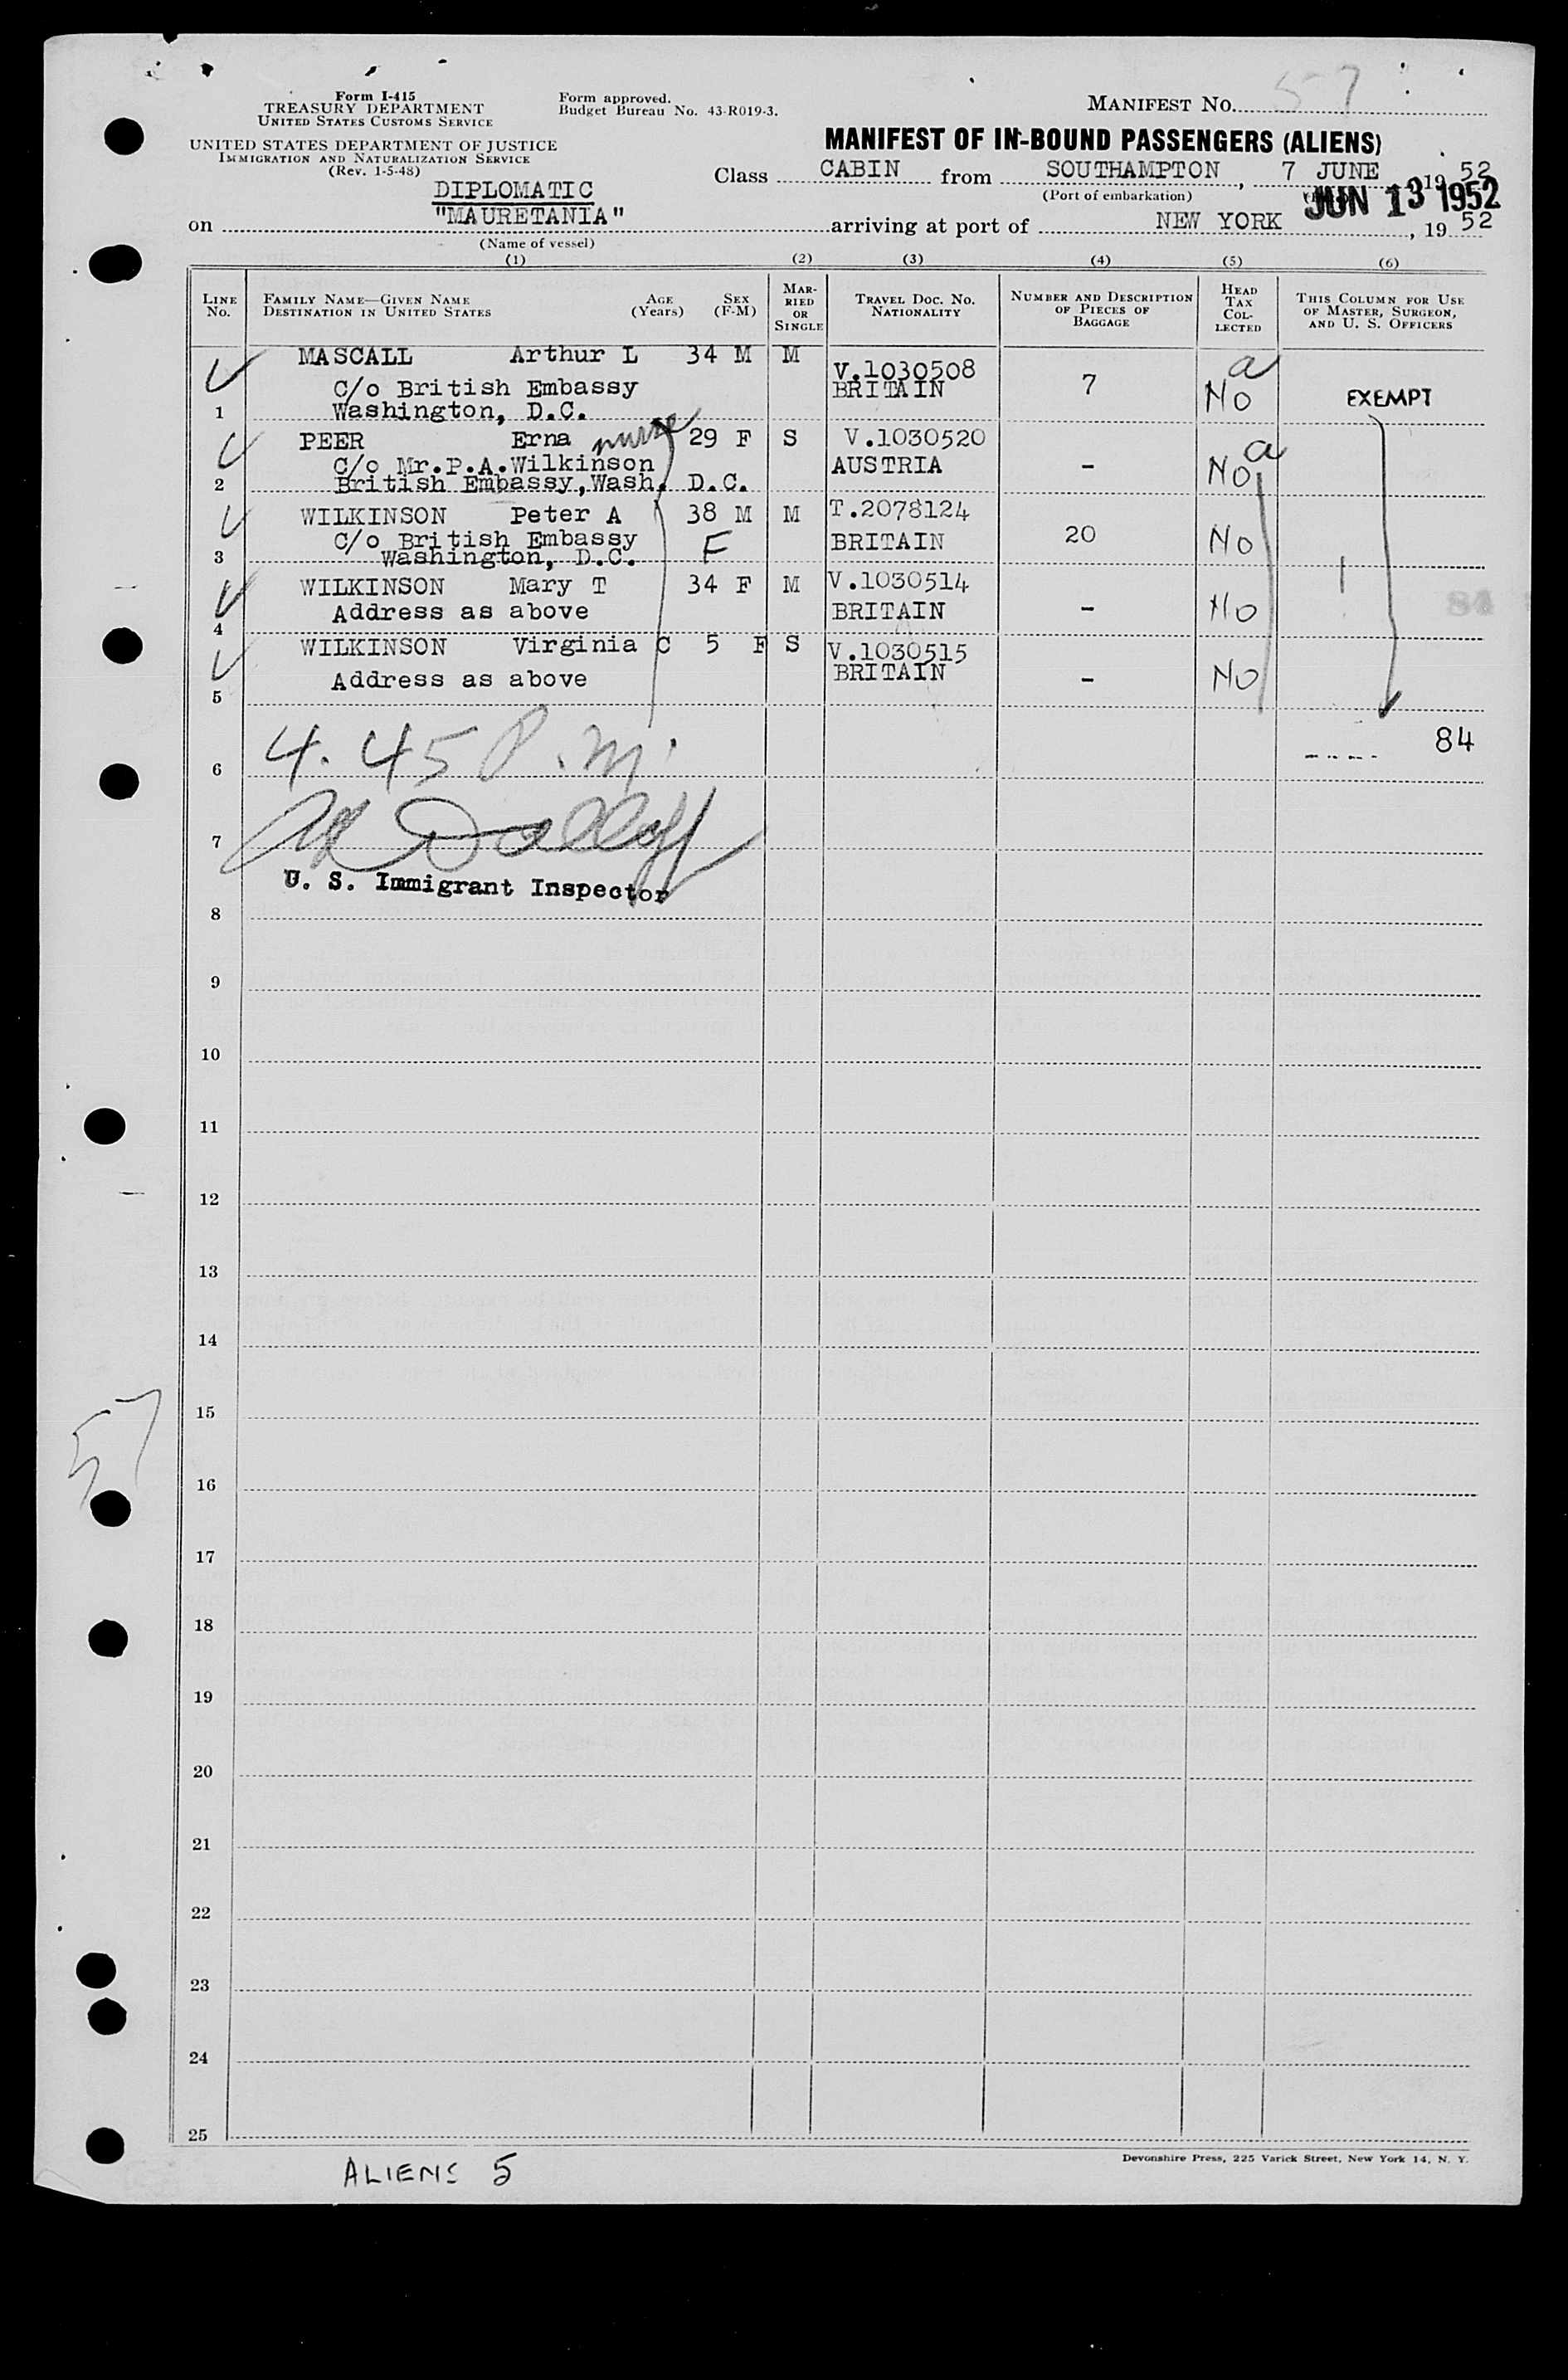 Form I-415
TREASURY DEPARTMENT
UNITED STATES CUSTOMS SERVICE
Form approved.
Budget Bureau No. 43-R019-3.
MANIFEST NO. 57
UNITED STATES DEPARTMENT OF JUSTICE
IMMIGRATION AND NATURALIZATION SERVICE
(Rev. 1-5-48)
MANIFEST OF IN-BOUND PASSENGERS (ALIENS)
Class CABIN from SOUTHAMPTON, 7 JUNE 1952
(Port of embarkation)
JUN 13 1952
DIPLOMATIC
on "MAURETANIA" arriving at port of NEW YORK, 19 52
(Name of vessel)
(1) (2) (3) (4) (5) (6)
LINE NO. FAMILY NAME—GIVEN NAME DESTINATION IN UNITED STATES AGE (Years) SEX (F-M) MARRIED OR SINGLE TRAVEL DOC. NO. NATIONALITY NUMBER AND DESCRIPTION OF PIECES OF BAGGAGE HEAD TAX COLLECTED THIS COLUMN FOR USE OF MASTER, SURGEON, AND U. S. OFFICERS
MASCALL Arthur L 34 M M V.1030508 a
C/o British Embassy BRITAIN 7 No EXEMPT
1 Washington, D.C.
PEER Erna nurse 29 F S V.1030520 a
C/o Mr.P.A.Wilkinson AUSTRIA - No
2 British Embassy,Wash. D.C.
WILKINSON Peter A 38 M M T.2078124
C/o British Embassy F BRITAIN 20 No
3 Washington, D.C.
WILKINSON Mary T 34 F M V.1030514
Address as above BRITAIN - No 84
4
WILKINSON Virginia C 5 F S V.1030515
Address as above BRITAIN - No
5
4.45 P.m. 84
6
7
U. S. Immigrant Inspector
8
9
10
11
12
13
14
15
57
16
17
18
19
20
21
22
23
24
25
Devonshire Press, 225 Varick Street, New York 14, N. Y.
ALIENS 5